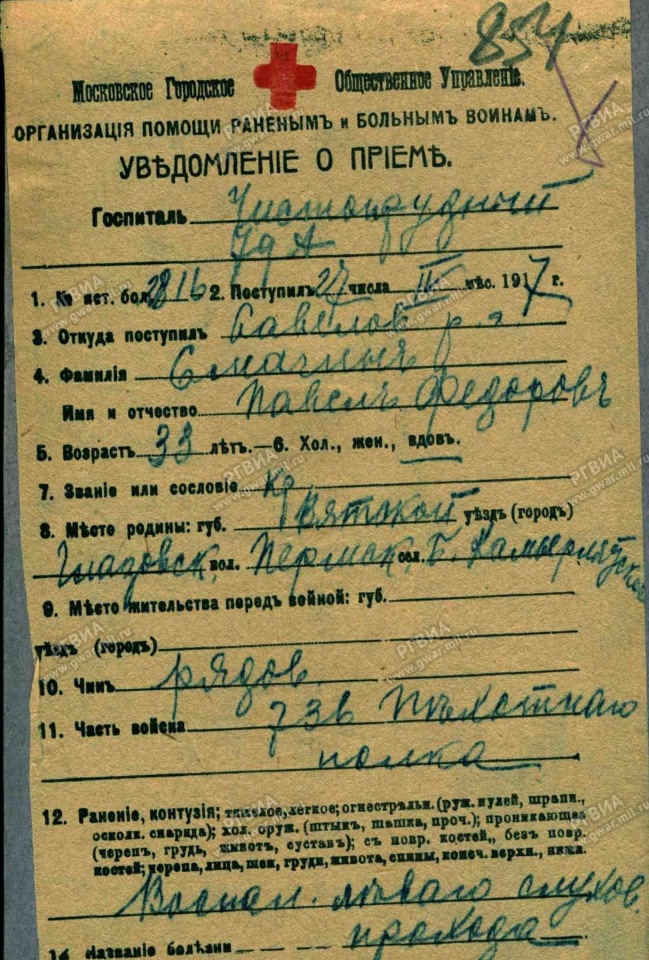 854
Московское Городское Общественное Управленіе.
ОРГАНИЗАЦІЯ ПОМОЩИ РАНЕНЫМЪ и БОЛЬНЫМЪ ВОИНАМЪ.
УВѢДОМЛЕНІЕ О ПРІЕМѢ.
Госпиталь Чистопрудный
1. № ист. бол. 2816 2. Поступилъ 27 числа IV мѣс. 1917 г.
3. Откуда поступилъ Савелов р. э.
4. Фамилія Смагинъ
Имя и отчество Павелъ Федоровъ
5. Возрастъ 33 лѣтъ.—6. Хол., жен., вдов.
7. Званіе или сословіе кр
8. Мѣсто родины: губ. Вятской уѣздъ (городъ)
Глазовск. вол. Пермяк. сел. Б.
9. Мѣсто жительства передъ войной: губ.
уѣздъ (городъ)
10. Чинъ рядов.
11. Часть войска 736 Пѣхотнаго
полка
12. Раненіе, контузія; тяжелое, легкое; огнестрѣльн. (руж. пулей, шрапн.,
осколк. снаряда); хол. оруж. (штыкъ, шашка, проч.); проникающая
(черепъ, грудь, животъ, суставъ); съ повр. костей, безъ повр.
костей; черепа, лица, шеи, груди, живота, спины, конеч. верхн., нижн.
Воспал. лѣваго слухов.
прохода
14 Названіе болѣзни
РГВИА
www.gwar.mil.ru